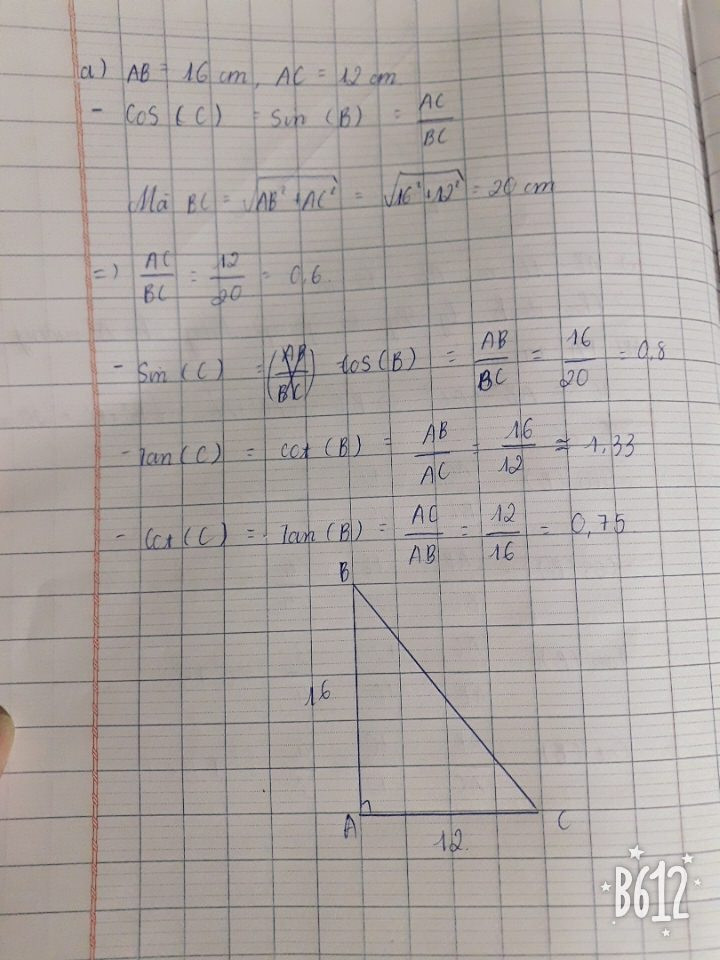 a) AB = 16 cm, AC = 12 cm
- Cos (C) = Sin (B) = AC/BC
Mà BC = √AB² + AC² = √16² + 12² = 20 cm
=> AC/BC = 12/20 = 0,6
- Sin (C) = (AB/BC) Cos (B) = AB/BC = 16/20 = 0,8
- Tan (C) = cot (B) = AB/AC = 16/12 ≈ 1,33
- Cot (C) = Tan (B) = AC/AB = 12/16 = 0,75
B
16
A
12
C
B612